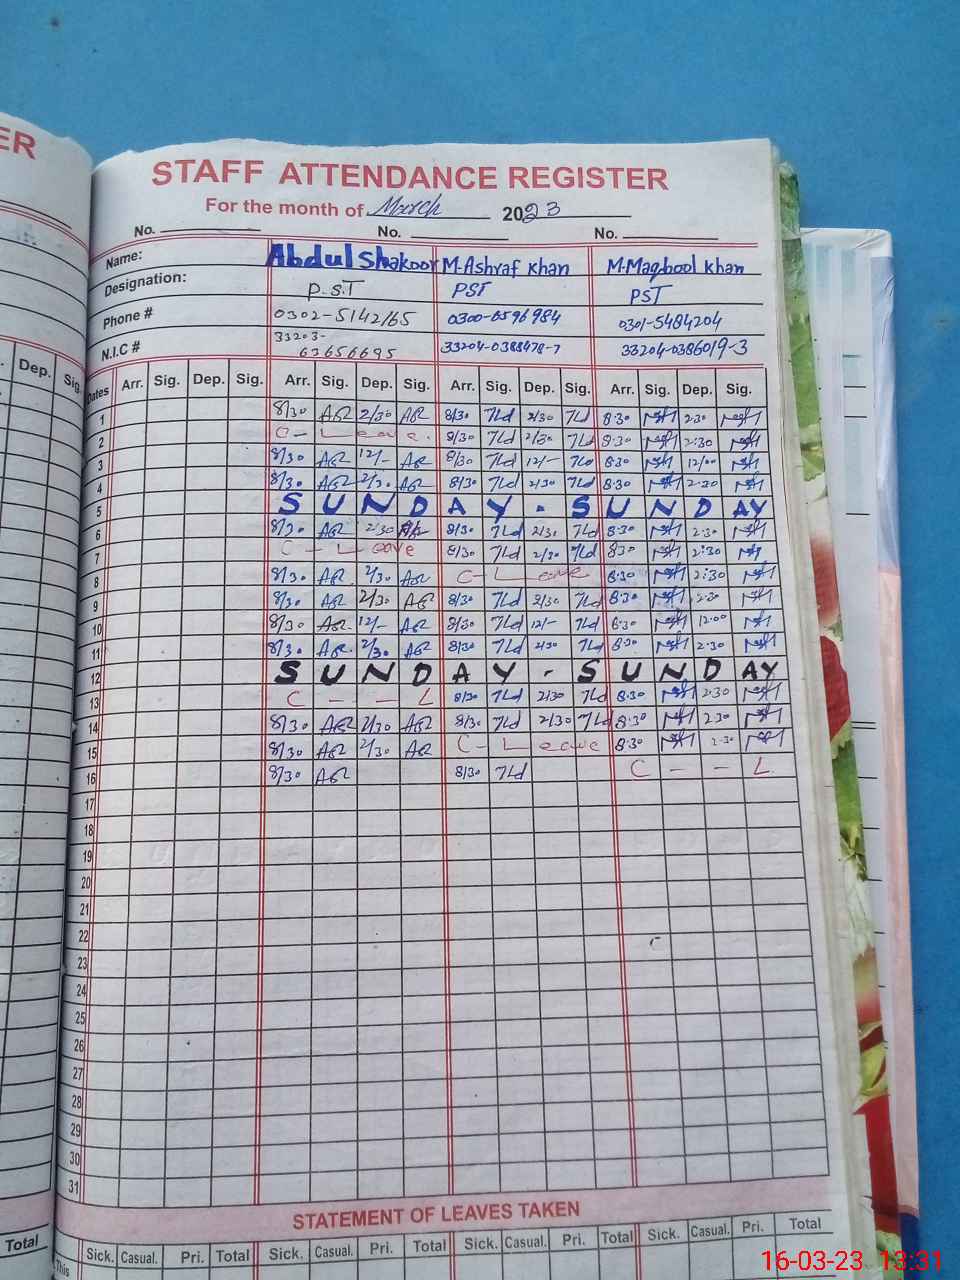 ER
STAFF ATTENDANCE REGISTER
For the month of March 2023
No. No. No.
Name: Abdul Shakoor M.Ashraf Khan M.Maqbool Khan
Designation: P.S.T PST PST
Phone # 0302-5142165 0300-6596984 0301-5484204
N.I.C # 33203-63656695 33204-0388478-7 33204-0386019-3
Dep. Sig. Dates Arr. Sig. Dep. Sig. Arr. Sig. Dep. Sig. Arr. Sig. Dep. Sig. Arr. Sig. Dep. Sig.
1 8/30 2/30 8/30 2/30 8:30 2:30
2 C- Leave. 8/30 2/30 8:30 2:30
3 8/30 12/- 8/30 12/- 8:30 12/00
4 8/30 2/30 8/30 2/30 8:30 2:30
5 SUNDAY - SUNDAY
6 8/30 2/30 8/30 2/30 8:30 2:30
7 C - Leave 8/30 2/30 8:30 2:30
8 8/30 2/30 C- Leave 8:30 2:30
9 8/30 2/30 8/30 2/30 8:30 2:30
10 8/30 12/- 8/30 12/- 8:30 12:00
11 8/30 2/30 8/30 2/30 8:30 2:30
12 SUNDAY - SUNDAY
13 C - - L 8/30 2/30 8:30 2:30
14 8/30 2/30 8/30 2/30 8:30 2:30
15 8/30 2/30 C- Leave 8:30 2:30
16 8/30 8/30 C - - L
17
18
19
20
21
22
23
24
25
26
27
28
29
30
31
STATEMENT OF LEAVES TAKEN
Total Sick. Casual. Pri. Total Sick. Casual. Pri. Total Sick. Casual. Pri. Total Sick. Casual. Pri. Total
This
16-03-23 13:31